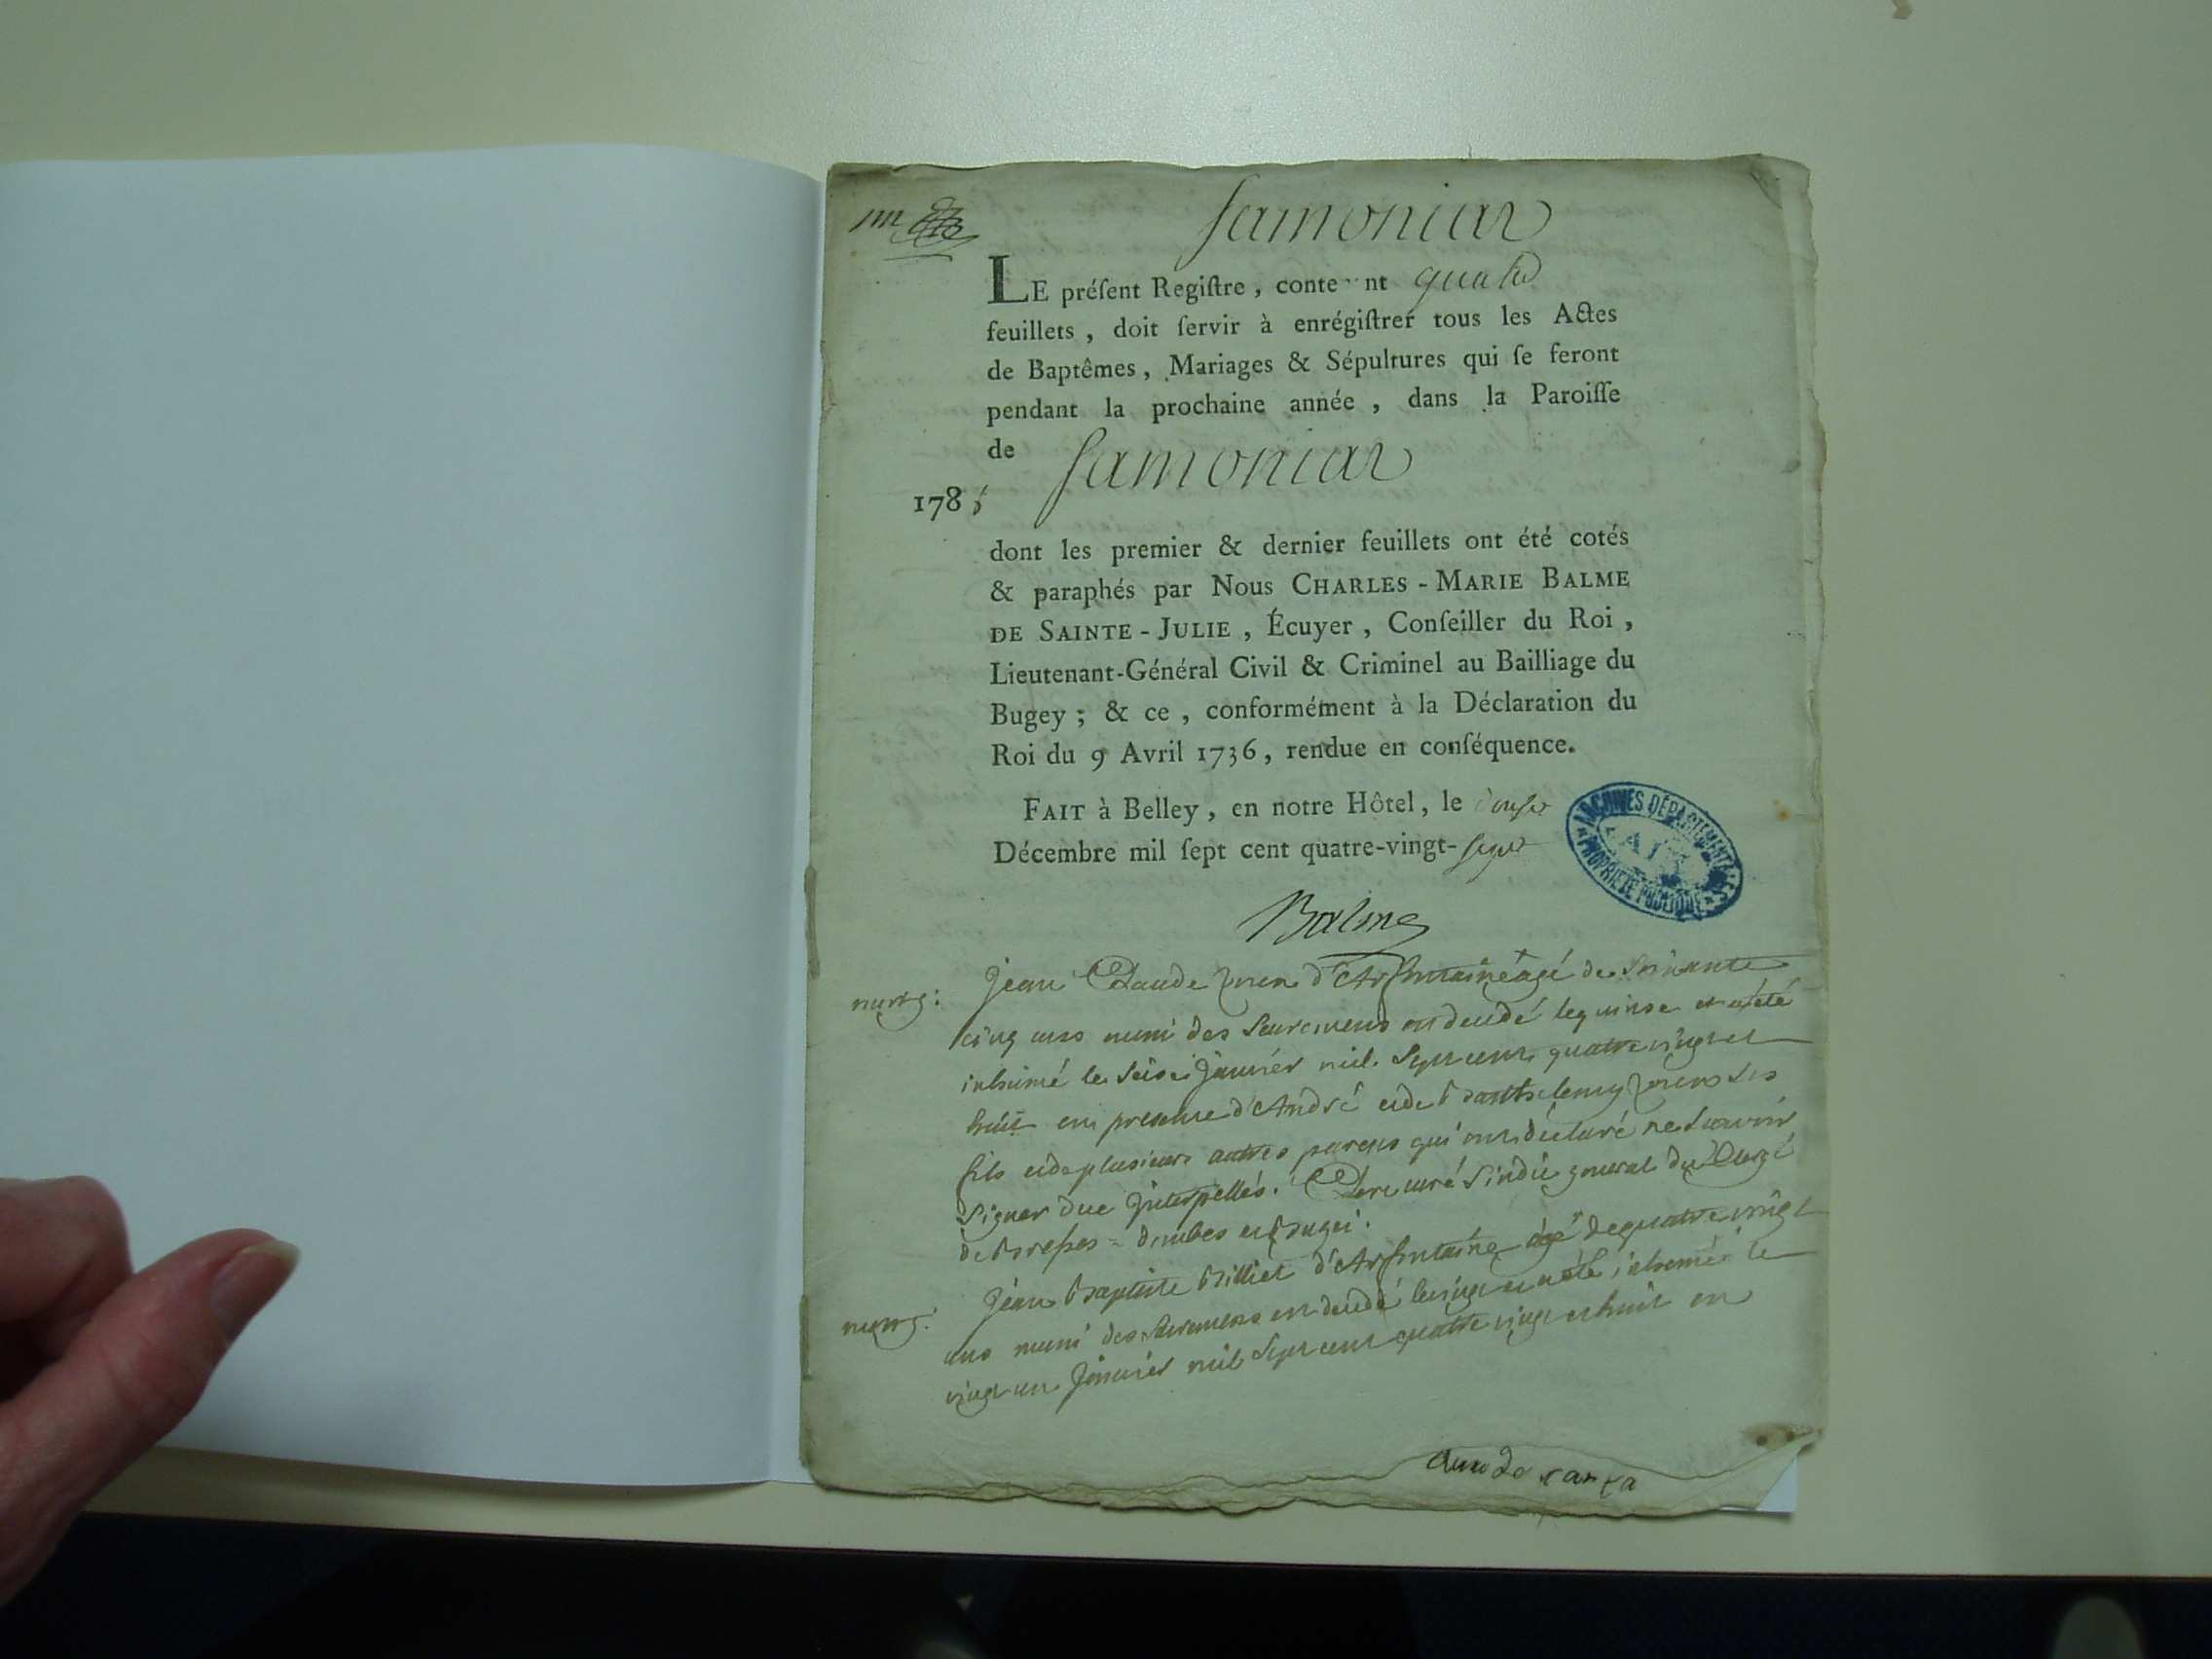 Samoniat
LE préſent Regiſtre, conte nt quatre
feuillets, doit ſervir à enrégiſtrer tous les Actes
de Baptêmes, Mariages & Sépultures qui ſe feront
pendant la prochaine année, dans la Paroiſſe
de Samoniat
178
dont les premier & dernier feuillets ont été cotés
& paraphés par Nous CHARLES-MARIE BALME
DE SAINTE-JULIE, Écuyer, Conſeiller du Roi,
Lieutenant-Général Civil & Criminel au Bailliage du
Bugey; & ce, conformément à la Déclaration du
Roi du 9 Avril 1736, rendue en conſéquence.
FAIT à Belley, en notre Hôtel, le douze
Décembre mil ſept cent quatre-vingt-sept
ARCHIVES DÉPARTEMENTALES
AIN
PROPRIÉTÉ PUBLIQUE
Balme
Jean Claude d'Arfontaine agé de soixante
cinq ans muni des Sacremens est decedé le quinse et a été
inhumé le seise Janvier mil sept cent quatre vingt et
huit en presence d'André et de Barthelemy ses
fils et de plusieurs autres parens qui ont déclaré ne scavoir
signer due interpellés. curé sindic general du Clergé
de Bresse = dombes et Bugei.
Jean Baptiste Billiet d'Arfontaine agé de quatre vingt
ans muni des Sacremens est decedé le vingt et a été inhumé le
vingt un Janvier mil sept cent quatre vingt et huit en